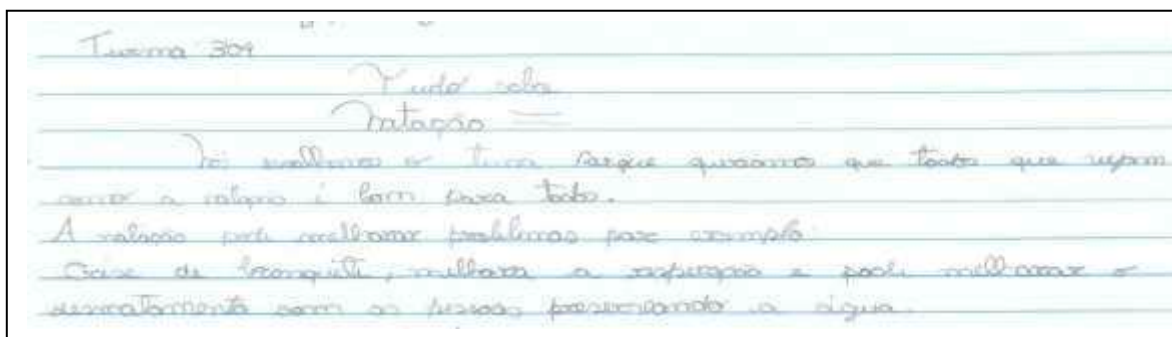 Turma 304
Tudo sobre
Natação
Nós escolhemos o tema porque queríamos que todos que vejam
como a natação é bom para todos.
A natação pode melhorar problemas por exemplo:
Crise de bronquite, melhora a respiração e pode melhorar o
com as pessoas preservando a água.